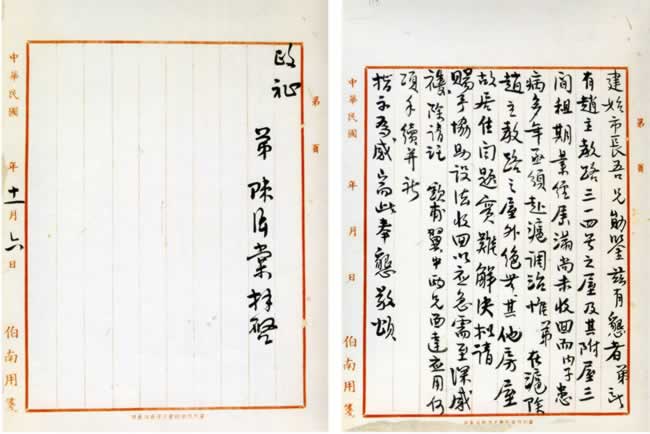 第 頁
建始市長吾兄勛鑒茲有懇者弟所
有趙主教路三一四号之屋及其附屋三
間租期業經屆滿尚未收回而內子患
病多年亟須赴滬調治惟弟在滬除
趙主教路之屋外絕無其他房屋
故居住問題實難解決 請
賜予協助設法收回以應急需至深感
禱除請託 翼中兩兄面達应用何
項手續并祈
指示為感耑此奉懇敬頌
中華民國 年 月 日 伯南用箋
第 頁
政祉
弟陳濟棠拜啓
中華民國 年十一月六日 伯南用箋